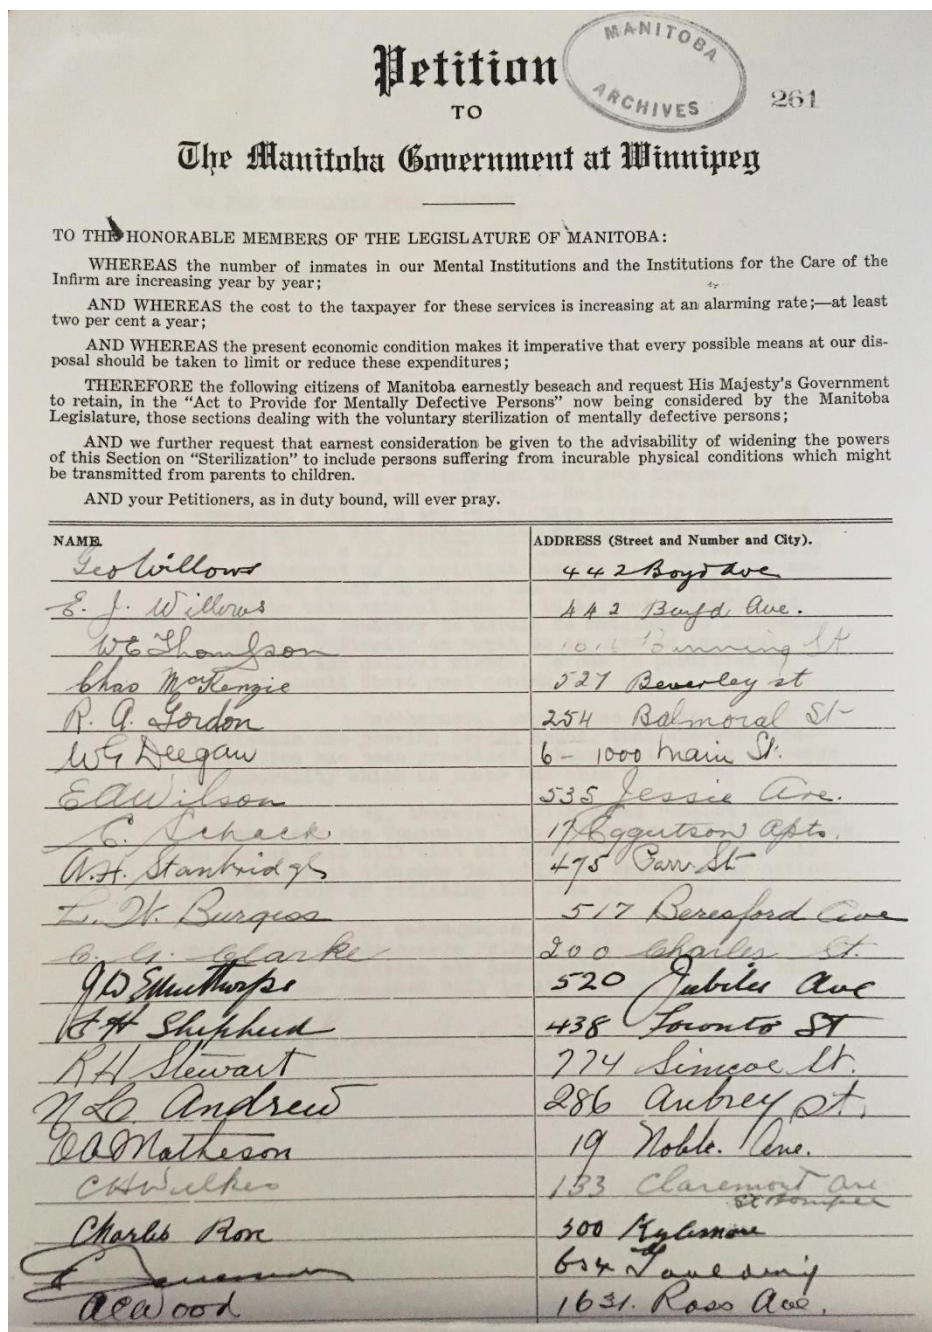 Petition
MANITOBA
ARCHIVES
261
TO
The Manitoba Government at Winnipeg
TO THE HONORABLE MEMBERS OF THE LEGISLATURE OF MANITOBA:
WHEREAS the number of inmates in our Mental Institutions and the Institutions for the Care of the
Infirm are increasing year by year;
AND WHEREAS the cost to the taxpayer for these services is increasing at an alarming rate;—at least
two per cent a year;
AND WHEREAS the present economic condition makes it imperative that every possible means at our dis-
posal should be taken to limit or reduce these expenditures;
THEREFORE the following citizens of Manitoba earnestly beseach and request His Majesty's Government
to retain, in the "Act to Provide for Mentally Defective Persons" now being considered by the Manitoba
Legislature, those sections dealing with the voluntary sterilization of mentally defective persons;
AND we further request that earnest consideration be given to the advisability of widening the powers
of this Section on "Sterilization" to include persons suffering from incurable physical conditions which might
be transmitted from parents to children.
AND your Petitioners, as in duty bound, will ever pray.
NAME. ADDRESS (Street and Number and City).
Geo Willows 442 Boyd Ave
E. J. Willows 442 Boyd Ave.
W E Thompson 1016 Banning St
Chas McKenzie 527 Beverley st
R. A. Gordon 254 Balmoral St
W G Deegan 6 - 1000 Main St.
E A Wilson 535 Jessie Ave.
C. Schack 17 Eggertson Apts.
A. H. Stanbridge 475 St
L. W. Burgess 517 Beresford Ave
C. G. Clarke 200 Charles St.
J D 520 Jubilee Ave
F H Shepherd 438 Toronto St
R H Stewart 774 Simcoe St.
N L Andrew 286 Aubrey st.
E A Matheson 19 Noble. Ave.
C H Wilkes 133 Claremont Ave
St Boniface
Charles Rose 500 Kylemore
654
A C Wood 1631. Ross Ave.